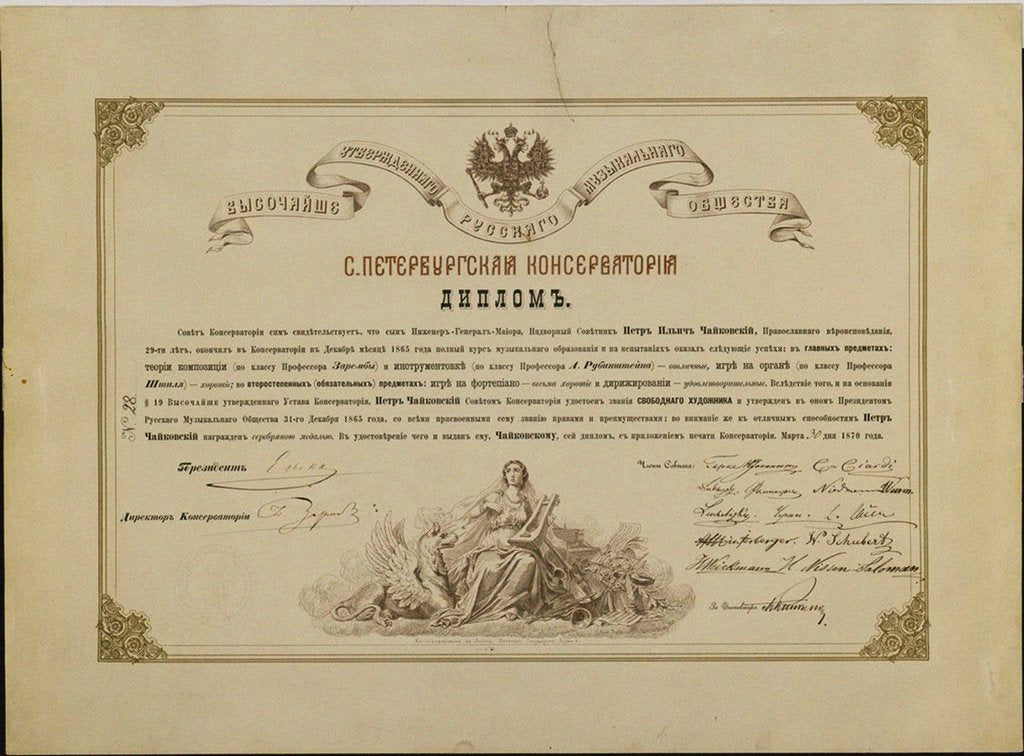 ВЫСОЧАЙШЕ УТВЕРЖДЕННАГО РУССКАГО МУЗЫКАЛЬНАГО ОБЩЕСТВА
С.ПЕТЕРБУРГСКАЯ КОНСЕРВАТОРІЯ
ДИПЛОМЪ.
Совѣтъ Консерваторіи симъ свидѣтельствуетъ, что сынъ Инженеръ-Генералъ-Маіора, Надворный Совѣтникъ Петръ Ильичъ Чайковскій, Православнаго вѣроисповѣданія,
29-ти лѣтъ, окончилъ въ Консерваторіи въ Декабрѣ мѣсяцѣ 1865 года полный курсъ музыкальнаго образованія и на испытаніяхъ оказалъ слѣдующіе успѣхи: въ главныхъ предметахъ:
теоріи композиціи (по классу Профессора Зарембы) и инструментовкѣ (по классу Профессора А. Рубинштейна) — отличные, игрѣ на органѣ (по классу Профессора
Штиля) — хорошіе; во второстепенныхъ (обязательныхъ) предметахъ: игрѣ на фортепіано — весьма хорошіе и дирижированіи — удовлетворительные. Вслѣдствіе того, и на основаніи
§ 19 Высочайше утвержденнаго Устава Консерваторіи, Петръ Чайковскій Совѣтомъ Консерваторіи удостоенъ званія СВОБОДНАГО ХУДОЖНИКА и утвержденъ въ ономъ Президентомъ
Русскаго Музыкальнаго Общества 31-го Декабря 1865 года, со всѣми присвоенными сему званію правами и преимуществами; во вниманіе же къ отличнымъ способностямъ Петръ
Чайковскій награжденъ серебряною медалью. Въ удостовѣреніе чего и выданъ ему, Чайковскому, сей дипломъ, съ приложеніемъ печати Консерваторіи. Марта 30 дня 1870 года.
№ 28
Президентъ Елена
Директоръ Консерваторіи Н. Заремба
Члены Совѣта: C. Ciardi
Wurm
L. Auer
W. Schubert
H. Nissen Saloman